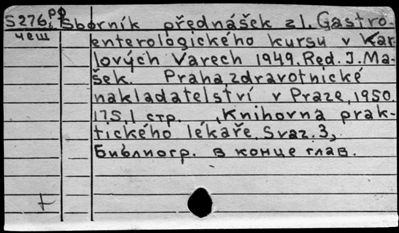 S276 рф Sborník přednášek z I. Gastro-
чеш enterologického kursu v Kar-
lových Varech 1949. Red. J. Ma-
šek. Praha, zdravotnické
nakladatelství v Praze, 1950.
175,1 стр. (Knihovna prak-
tického lékaře. Svaz. 3)
Библиогр. в конце глав.